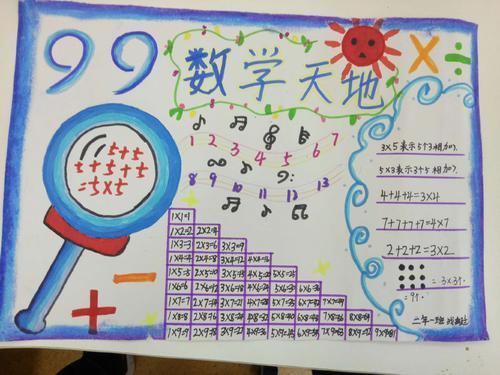 99
数学天地
×÷
1 2 3 4 5 6 7
8 9 10 11 12 13
5+5
5+5+5
=5×5
+ -
1×1=1
1×2=2 2×2=4
1×3=3 2×3=6 3×3=9
1×4=4 2×4=8 3×4=12 4×4=16
1×5=5 2×5=10 3×5=15 4×5=20 5×5=25
1×6=6 2×6=12 3×6=18 4×6=24 5×6=30 6×6=36
1×7=7 2×7=14 3×7=21 4×7=28 5×7=35 6×7=42 7×7=49
1×8=8 2×8=16 3×8=24 4×8=32 5×8=40 6×8=48 7×8=56 8×8=64
1×9=9 2×9=18 3×9=27 4×9=36 5×9=45 6×9=54 7×9=63 8×9=72 9×9=81
3×5表示5个3相加。
5×3表示3个5相加。
4+4+4=3×4
7+7+7+7=4×7
2+2+2=3×2
=3×3个
=9个
二年一班